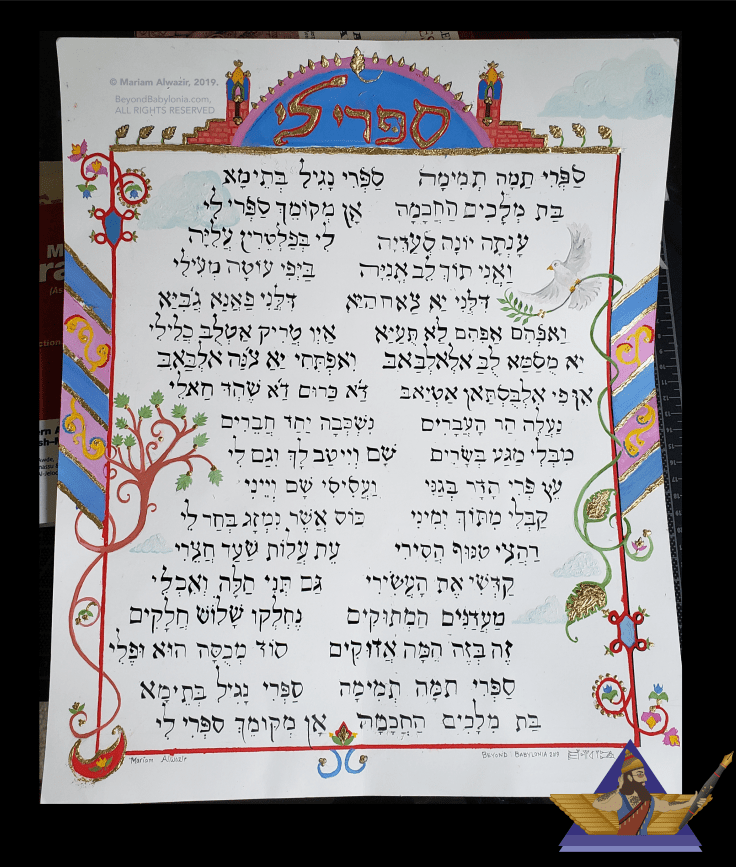 © Mariam Alwazir, 2019.
BeyondBabylonia.com,
ALL RIGHTS RESERVED
ספרי לי
סַפְּרִי תַמָּה תְמִימָה סַפְּרִי נָגִיל בְּתֵימָא
בַּת מְלָכִים הַחֲכָמָה אָן מְקוֹמֵךְ סַפְּרִי לִי
עָנְתָה יוֹנָה סְעָדְיָה לִי בְּפַלְטְרִין עֲלִיָּה
וַאֲנִי תוֹךְ לֵב אֳנִיָּה בְּיֹפִי עוֹטָה מְעִילִי
דִלְּנִי יַא צַאח הַיָּא דִלְּנִי פַאַנַא גֹבִּיַא
וַאפְהִם אַפְהַם לַא תִּעְיַא אַיִן טַרִיק אַטְלֻבּ כְּלִילִי
יַא מֻסַמַּא לֻבּ אַלְאַלְבַּאב וַאפְתַחִי יַא צֹנָּה אַלְבַּאב
אִן פִי אַלְבֻּסְתַּאן אַטְיַאבּ דַא כַּרוּם דַא שַׁהְד חַאלִי
נַעֲלֶה הַר הָעֲבָרִים נִשְׁכְּבָה יַחַד חֲבֵרִים
מִבְּלִי מַגַּע בְּשָׂרִים שָׁם וְיִיטַב לָךְ וְגַם לִי
עֵץ פְּרִי הָדָר בְּגַנִּי וַעֲסִיסִי שָׁם וְיֵינִי
קַבְּלִי מִתּוֹךְ יְמִינִי כּוֹס אֲשֶׁר נִמְזָג בְּחַר לִי
רַחֲצִי טִנּוּף הֲסִירִי עֵת עֲלוֹת שַׁעַר חֲצֵרִי
קַדְּשִׁי אֶת הָעֲשִׂירִי גַּם תְּנִי חַלָּה וְאִכְלִי
מַעֲדַנִּים הַמְתוּקִים נֶחְלְקוּ שָׁלוֹשׁ חֲלָקִים
זֶה בְּזֶה הֵמָּה אֲדוּקִים סוֹד מְכֻסֶּה הוּא וּפֶלִי
סַפְּרִי תַמָּה תְמִימָה סַפְּרִי נָגִיל בְּתֵימָא
בַּת מְלָכִים הַחֲכָמָה אָן מְקוֹמֵךְ סַפְּרִי לִי
Mariam Alwazir
BEYOND BABYLONIA 2019